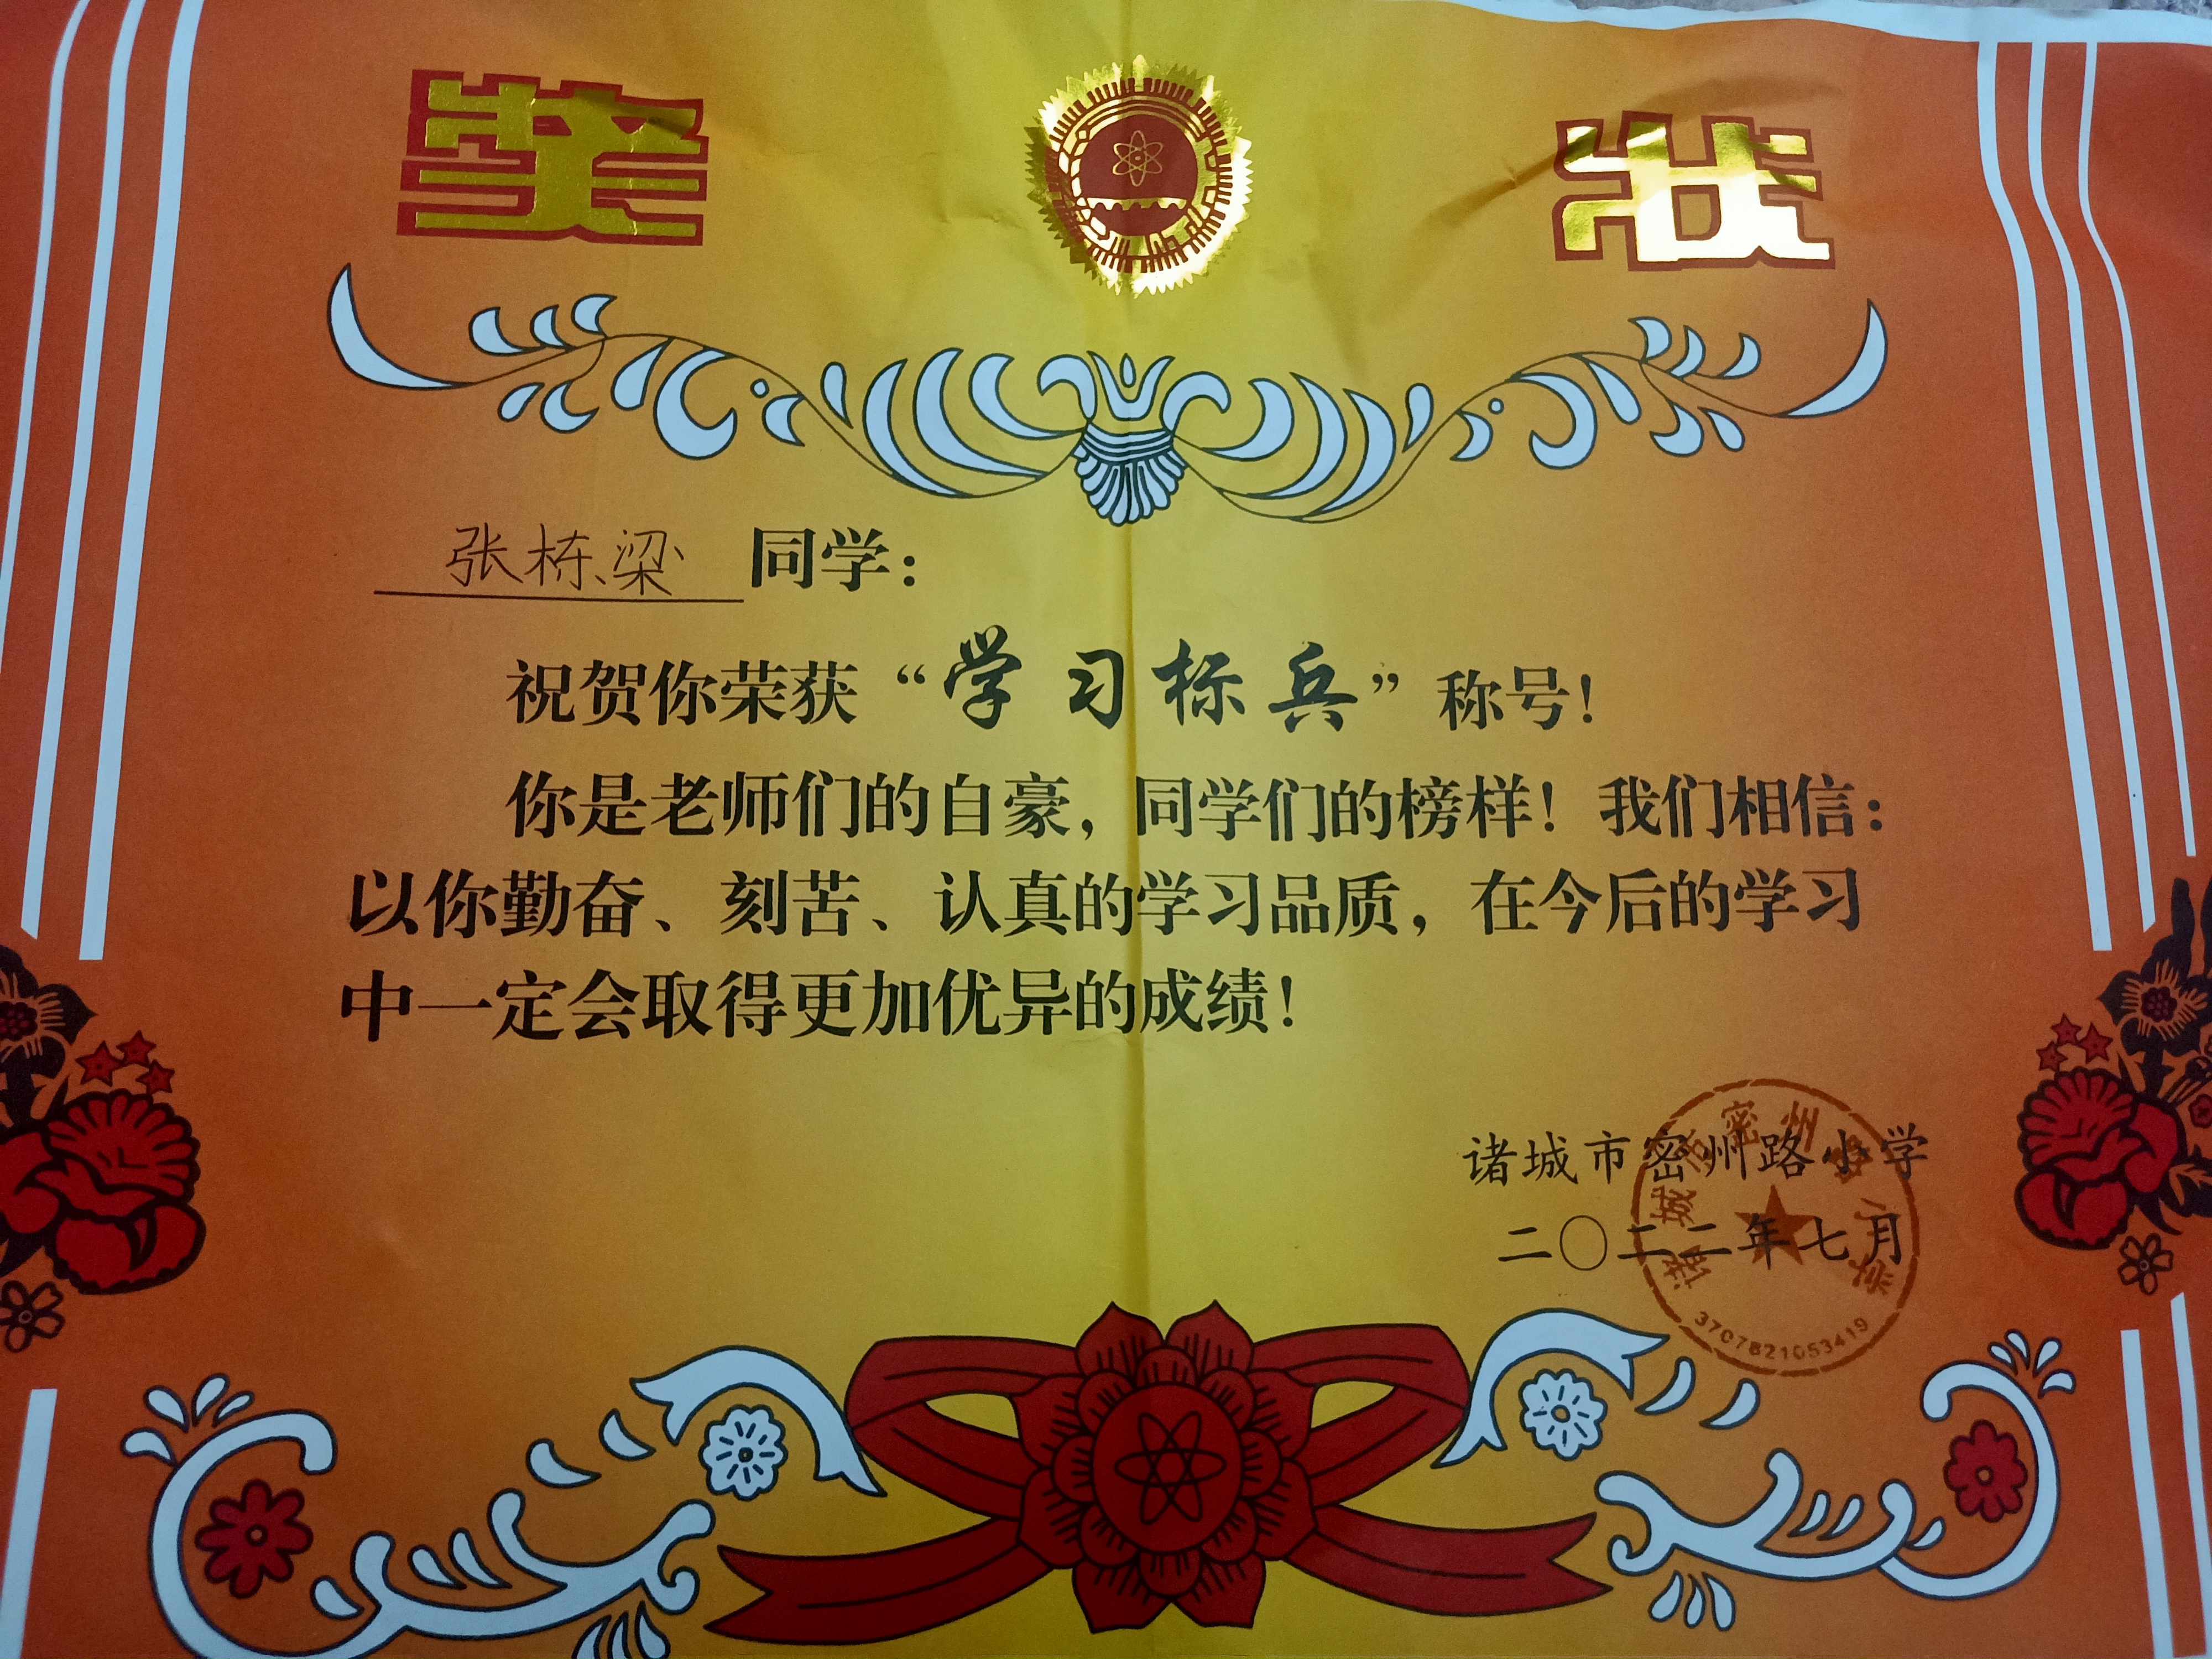 奖状
张栋梁 同学：
祝贺你荣获“学习标兵”称号！
你是老师们的自豪，同学们的榜样！我们相信：
以你勤奋、刻苦、认真的学习品质，在今后的学习
中一定会取得更加优异的成绩！
诸城市密州路小学
二〇二二年七月
诸城市密州路小学
3707821053419